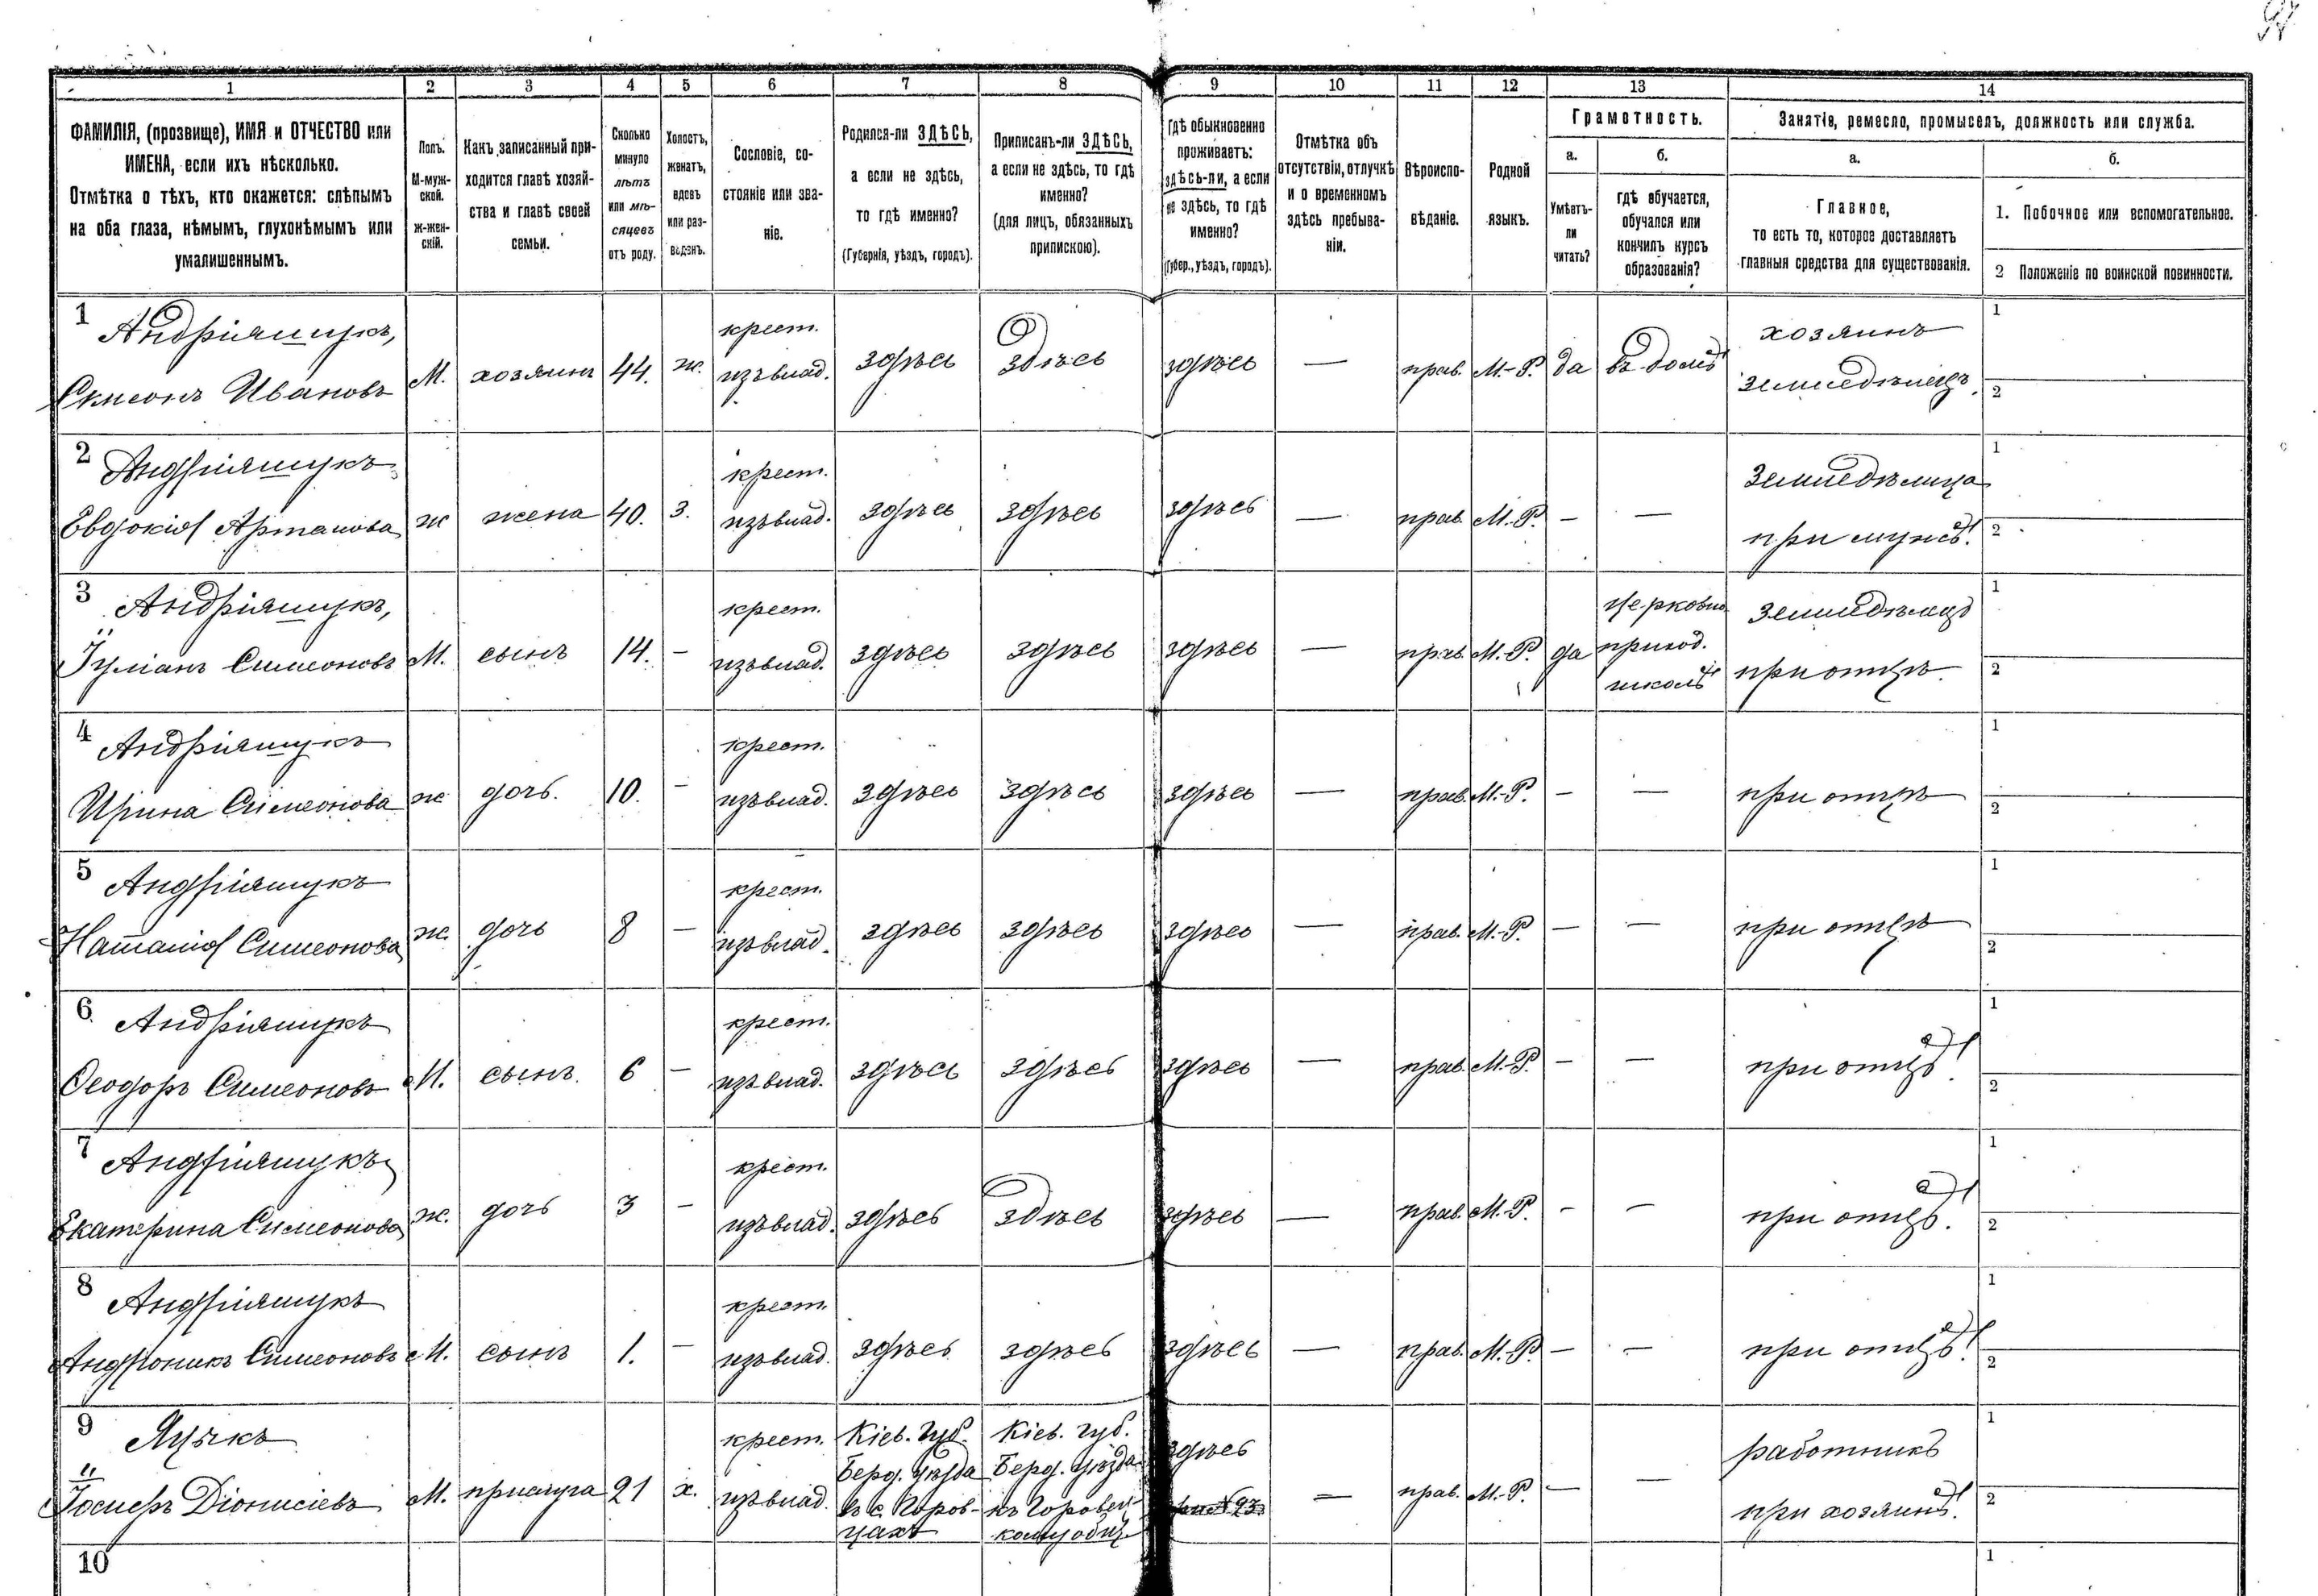 97
1 2 3 4 5 6 7 8 9 10 11 12 13 14
ФАМИЛІЯ, (прозвище), ИМЯ и ОТЧЕСТВО или
ИМЕНА, если ихъ нѣсколько.
Отмѣтка о тѣхъ, кто окажется: слѣпымъ
на оба глаза, нѣмымъ, глухонѣмымъ или
умалишеннымъ.
Полъ.
М-муж-
ской.
Ж-жен-
скій.
Какъ записанный при-
ходится главѣ хозяй-
ства и главѣ своей
семьи.
Сколько
минуло
лѣтъ
или мѣ-
сяцевъ
отъ роду.
Холостъ,
женатъ,
вдовъ
или раз-
веденъ.
Сословіе, со-
стояніе или зва-
ніе.
Родился-ли ЗДѢСЬ,
а если не здѣсь,
то гдѣ именно?
(Губернія, уѣздъ, городъ).
Приписанъ-ли ЗДѢСЬ,
а если не здѣсь, то гдѣ
именно?
(для лицъ, обязанныхъ
припискою).
Гдѣ обыкновенно
проживаетъ:
здѣсь-ли, а если
не здѣсь, то гдѣ
именно?
(Губер., уѣздъ, городъ).
Отмѣтка объ
отсутствіи, отлучкѣ
и о временномъ
здѣсь пребыва-
ніи.
Вѣроиспо-
вѣданіе.
Родной
языкъ.
Грамотность.
а.
Умѣетъ-
ли
читать?
б.
гдѣ обучается,
обучался или
кончилъ курсъ
образованія?
Занятіе, ремесло, промыселъ, должность или служба.
а.
Главное,
то есть то, которое доставляетъ
главныя средства для существованія.
б.
1. Побочное или вспомогательное.
2 Положеніе по воинской повинности.
1
Андріящукъ,
Симеонъ Ивановъ
М.
хозяинъ
44.
ж.
крест.
изъ влад.
здѣсь
здѣсь
здѣсь
—
прав.
М.-Р.
да
въ домѣ
хозяинъ
земледѣлецъ.
1
2
2
Андріящукъ,
Евдокія
ж
жена
40.
з.
крест.
изъ влад.
здѣсь
здѣсь
здѣсь
—
прав.
М.-Р.
—
—
Земледѣлица
при мужѣ.
1
2
3
Андріящукъ,
Іуліанъ Симеоновъ
М.
сынъ
14.
—
крест.
изъ влад.
здѣсь
здѣсь
здѣсь
—
прав.
М.-Р.
да
церковно
приход.
школѣ
земледѣлецъ
при отцѣ.
1
2
4
Андріящукъ
Ирина Симеонова
ж
дочь.
10.
—
крест.
изъ влад.
здѣсь
здѣсь
здѣсь
—
прав.
М.-Р.
—
—
при отцѣ
1
2
5
Андріящукъ
Наталія Симеонова
ж.
дочь
8
—
крест.
изъ влад.
здѣсь
здѣсь
здѣсь
—
прав.
М.-Р.
—
—
при отцѣ
1
2
6
Андріящукъ
Ѳеодоръ Симеоновъ
М.
сынъ.
6
—
крест.
изъ влад.
здѣсь
здѣсь
здѣсь
—
прав.
М.-Р.
—
—
при отцѣ.
1
2
7
Андріящукъ,
Екатерина Симеонова
ж.
дочь
3
—
крест.
изъ влад.
здѣсь
здѣсь
здѣсь
—
прав.
М.-Р.
—
—
при отцѣ.
1
2
8
Андріящукъ
Андроникъ Симеоновъ
М.
сынъ
1.
—
крест.
изъ влад.
здѣсь
здѣсь
здѣсь
—
прав.
М.-Р.
—
—
при отцѣ.
1
2
9
Яцыкъ
Іосифъ Діонисіевъ
М.
прислуга
21
х.
крест.
изъ влад.
Кіев. Губ.
Берд. Уѣзда
въ с. Горов-
цахъ
Кіев. губ.
Берд. уѣзда
къ Горовец-
кому общ.
здѣсь
№ 97
—
прав.
М.-Р.
—
—
работникъ
при хозяинѣ.
1
2
10
1